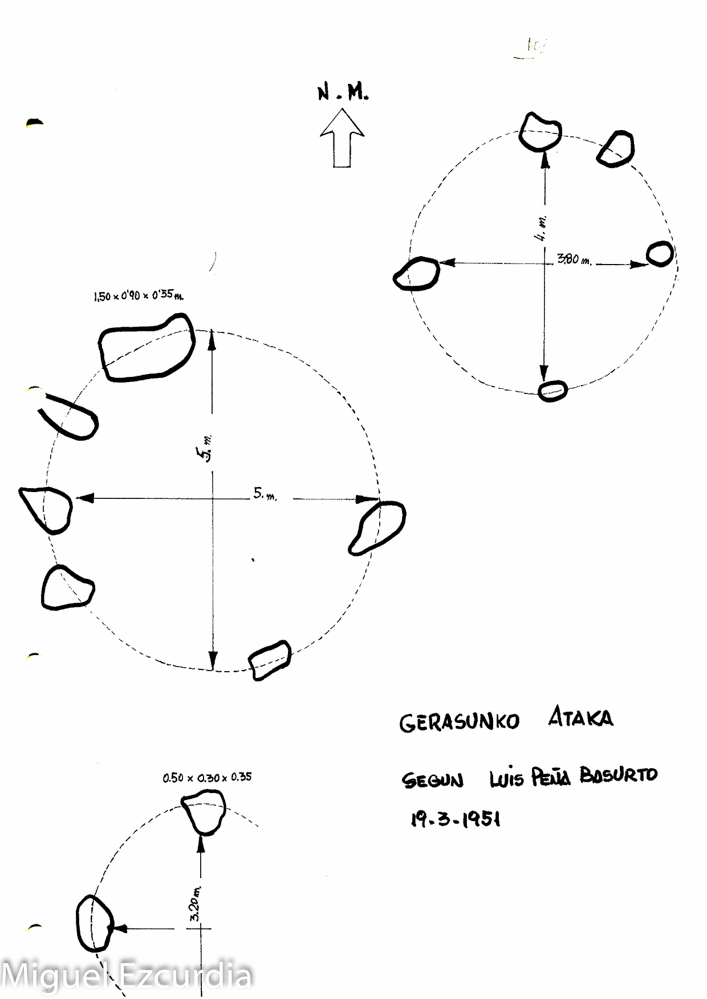 N.M.
4. m.
3,80 m.
1,50 x 0'90 x 0'35 m.
5. m.
5. m.
GERASUNKO ATAKA
SEGUN LUIS PEÑA BASURTO
19-3-1951
0.50 x 0.30 x 0.35
3.20 m.
Miguel Ezcurdia